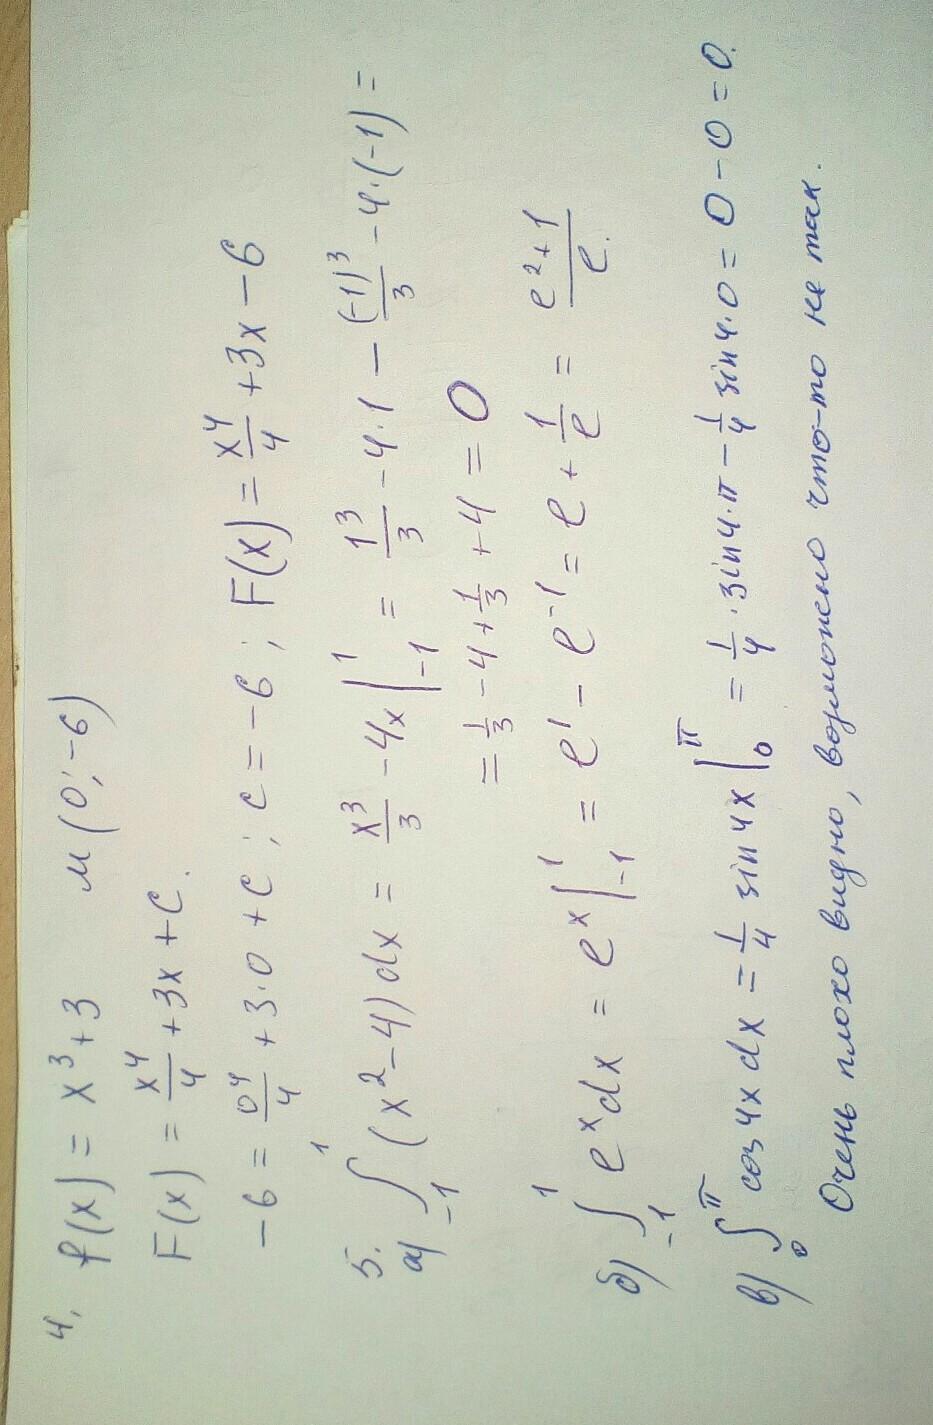 4. f(x) = x³+3   М(0;-6)
F(x) = x⁴/4 +3x+C.
-6 = 0⁴/4 +3·0+C; C=-6; F(x) = x⁴/4 +3x-6
5.
а) ∫₋₁¹ (x²-4)dx = x³/3 -4x|₋₁¹ = 1³/3 -4·1 - (-1)³/3 -4·(-1) =
= 1/3 -4+1/3 +4 = 0
б) ∫₋₁¹ eˣdx = eˣ|₋₁¹ = e¹-e⁻¹ = e+1/e = e²+1/e.
в) ∫₀^π cos4xdx = 1/4 sin4x|₀^π = 1/4·sin4·π - 1/4 sin4·0 = 0-0=0.
Очень плохо видно, возможно что-то не так.